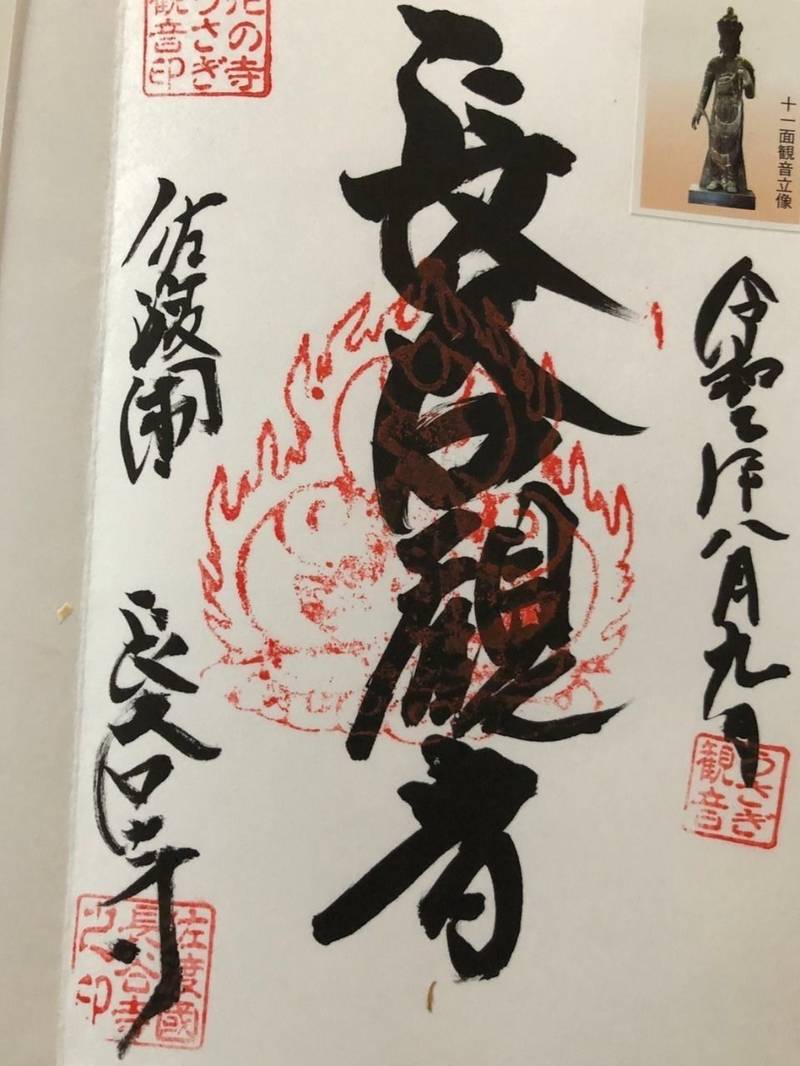 十一面観音立像
令和二年八月九日
うさぎ
観音
長谷観音
花の寺
うさぎ
観音印
佐渡国
長谷寺
佐渡國
長谷寺
之印